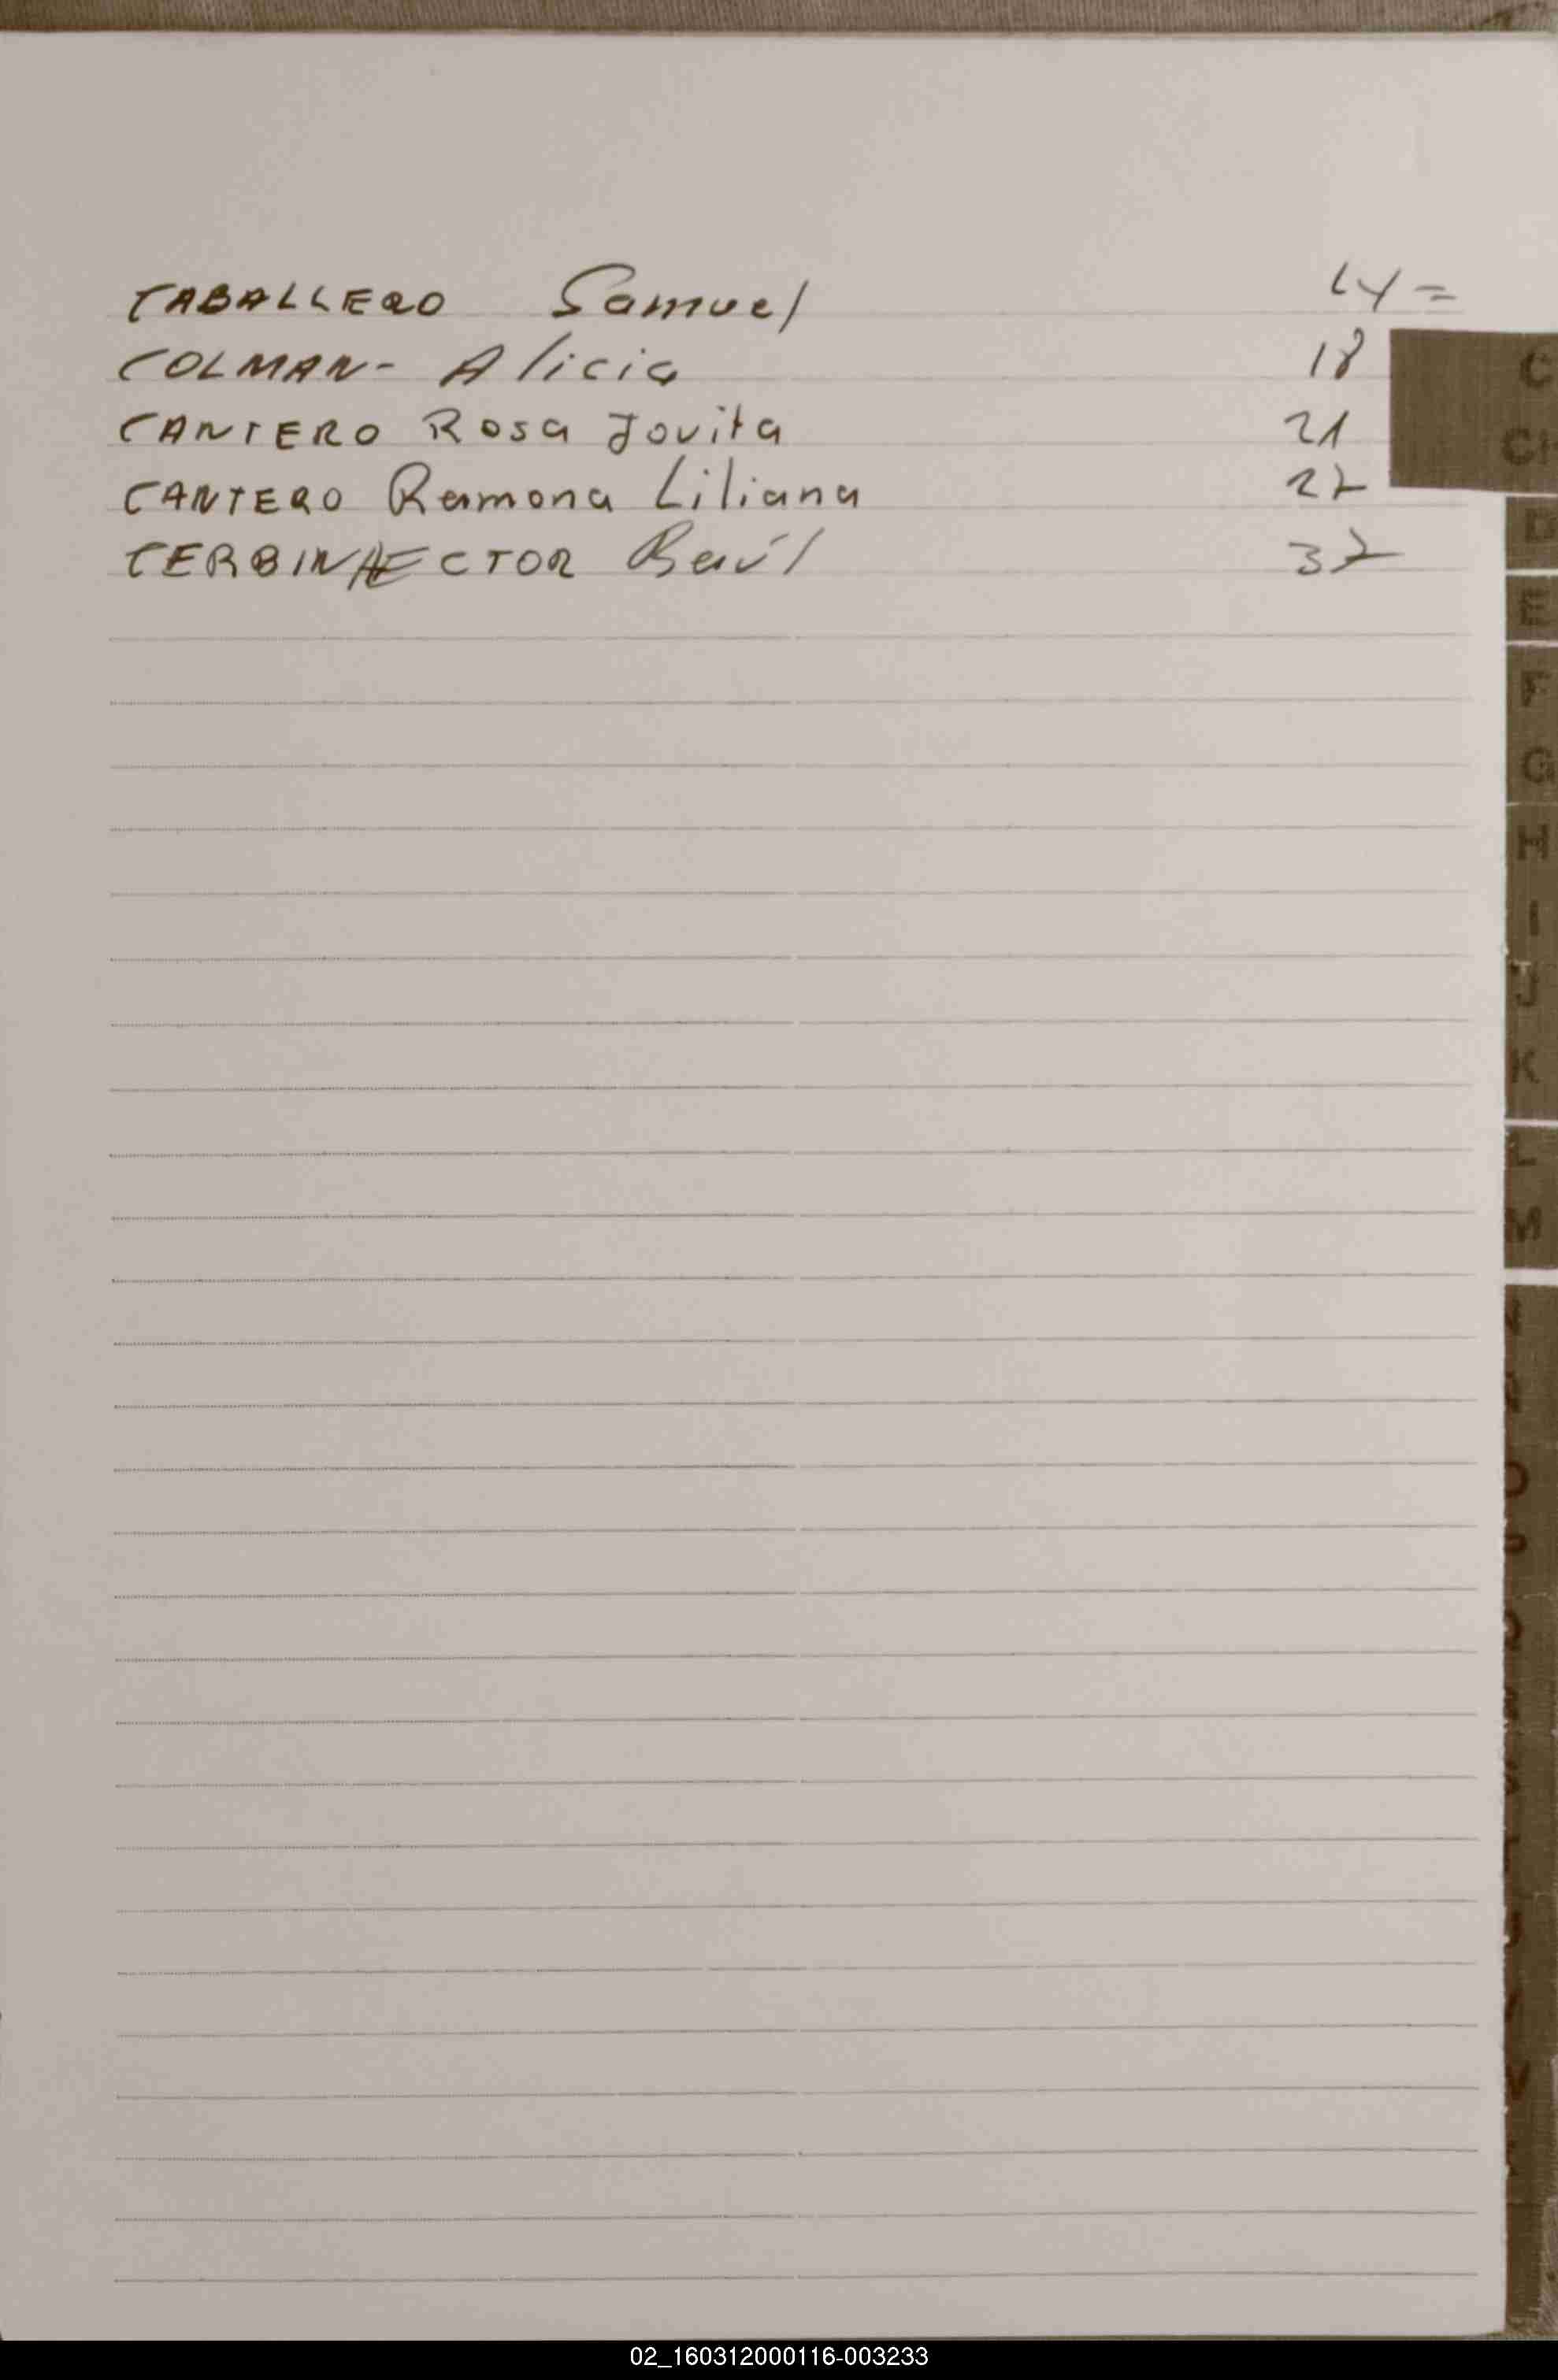 CABALLERO Samuel 14 =
COLMAN- Alicia 18
CANTERO Rosa Jovita 21
CANTERO Ramona Liliana 22
CERBIN HECTOR Raúl 37
C
CH
D
E
F
G
H
I
J
K
L
M
02_160312000116-003233